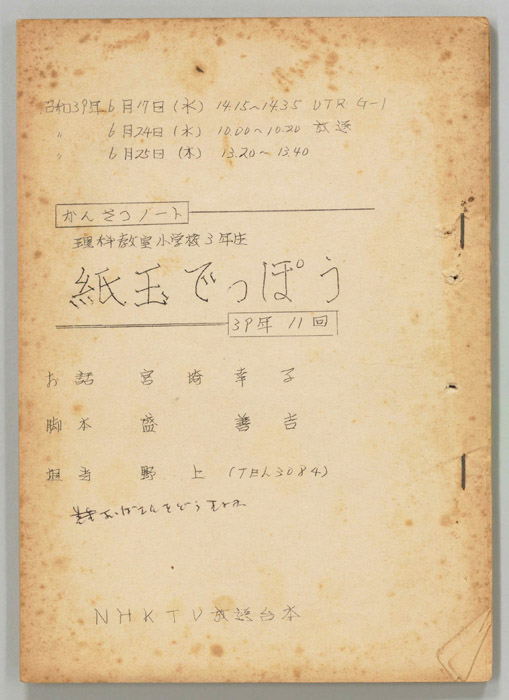 昭和39年6月17日(水) 14.15~14.35 VTR G-1
〃 6月24日(水) 10.00~10.20 放送
〃 6月25日(木) 13.20~13.40
かんさつノート
理科教室小学校3年生
紙玉でっぽう
39年 11回
お話 宮崎幸子
脚本 盛善吉
担当 野上 (TEL3084)
NHKTV放送台本